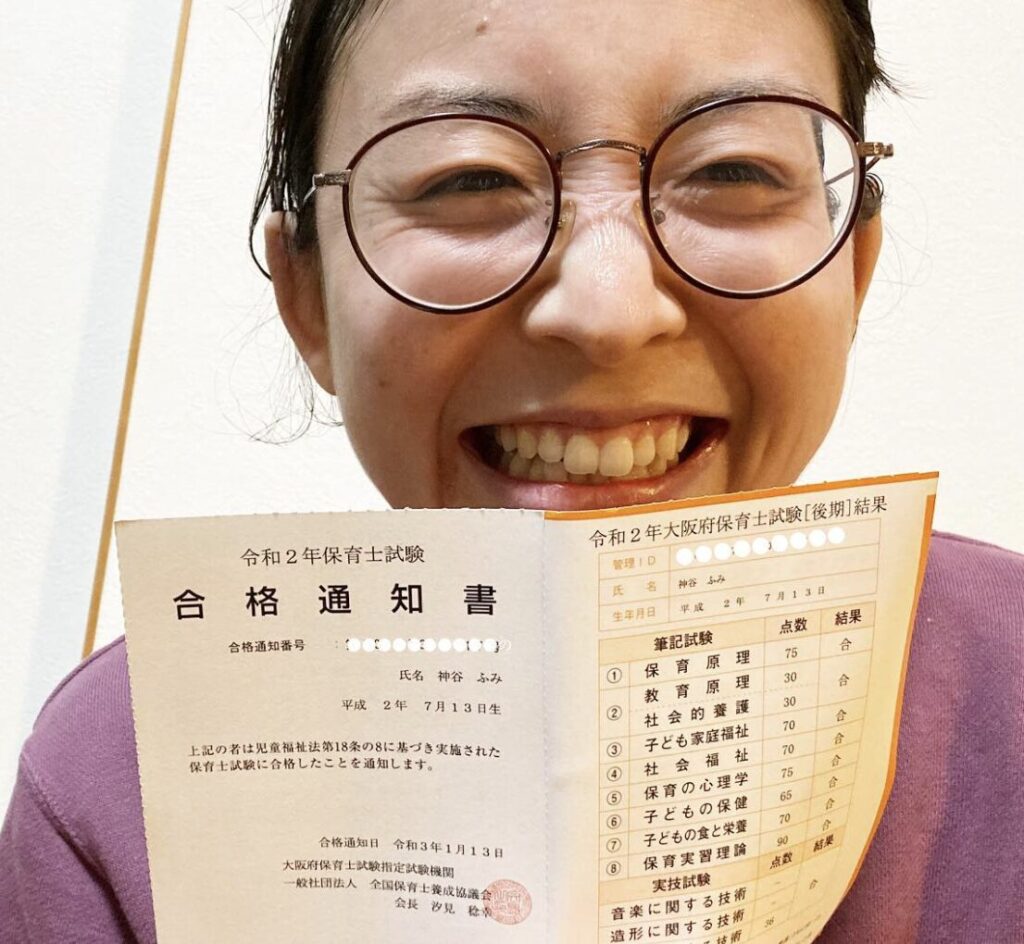 令和2年保育士試験
合格通知書
合格通知番号
氏名 神谷 ふみ
平成 2年 7月13日生
上記の者は児童福祉法第18条の8に基づき実施された
保育士試験に合格したことを通知します。
合格通知日 令和3年1月13日
大阪府保育士試験指定試験機関
一般社団法人 全国保育士養成協議会
会長 汐見 稔幸
令和2年大阪府保育士試験[後期]結果
管理ID
氏 名 神谷 ふみ
生年月日 平成 2年 7月13日
筆記試験 点数 結果
① 保育原理 75 合
② 教育原理 30 合
社会的養護 30
③ 子ども家庭福祉 70 合
④ 社会福祉 70 合
⑤ 保育の心理学 75 合
⑥ 子どもの保健 65 合
⑦ 子どもの食と栄養 70 合
⑧ 保育実習理論 90 合
実技試験 点数 結果
音楽に関する技術 － 合
造形に関する技術 36
る技術